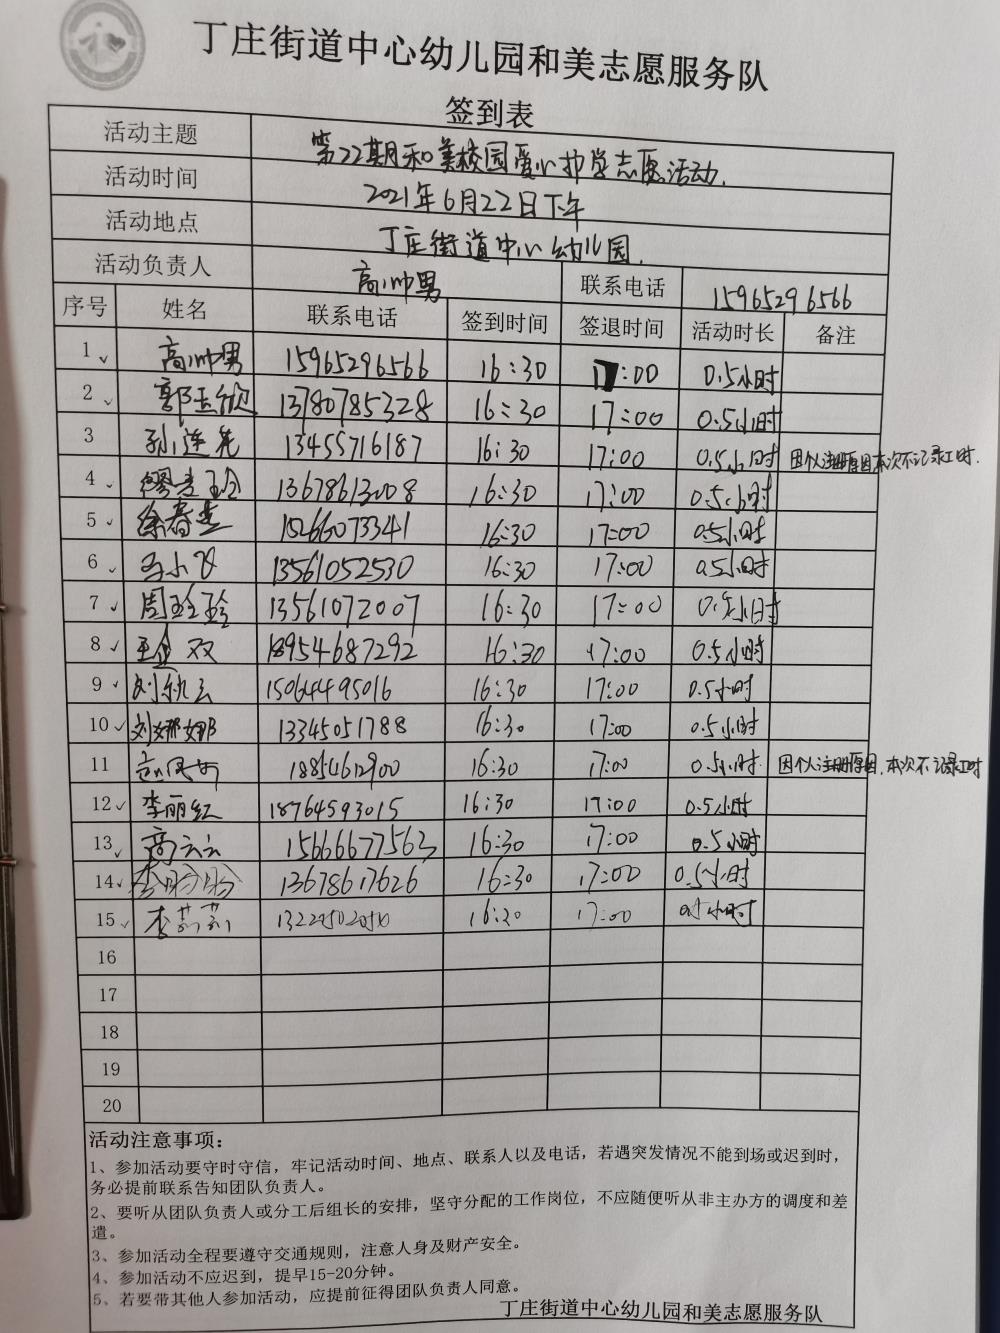 丁庄街道中心幼儿园和美志愿服务队
签到表
活动主题 第22期和美校园爱心护学志愿活动.
活动时间 2021年6月22日下午
活动地点 丁庄街道中心幼儿园.
活动负责人 高帅男 联系电话 15965296566
序号 姓名 联系电话 签到时间 签退时间 活动时长 备注
1 ✓ 高帅男 15965296566 16:30 17:00 0.5小时
2 ✓ 郭玉欣 13780785328 16:30 17:00 0.5小时
3 孙连先 13455716187 16:30 17:00 0.5小时 因个人注册原因本次不记录工时.
4 ✓ 13678613008 16:30 17:00 0.5小时
5 ✓ 徐春 15266073341 16:30 17:00 0.5小时
6 ✓ 小飞 13561052530 16:30 17:00 0.5小时
7 ✓ 周玲玲 13561072007 16:30 17:00 0.5小时
8 ✓ 双 18954687292 16:30 17:00 0.5小时
9 ✓ 刘 15064495016 16:30 17:00 0.5小时
10 ✓ 刘娜娜 13345051788 16:30 17:00 0.5小时
11 18854612900 16:30 17:00 0.5小时 因个人注册原因,本次不记录工时
12 ✓ 李丽红 18764593015 16:30 17:00 0.5小时
13 ✓ 高云云 15666677563 16:30 17:00 0.5小时
14 ✓ 李盼盼 13678617626 16:30 17:00 0.5小时
15 ✓ 李莉莉 16:30 17:00 0.5小时
16
17
18
19
20
活动注意事项：
1、参加活动要守时守信，牢记活动时间、地点、联系人以及电话，若遇突发情况不能到场或迟到时，
务必提前联系告知团队负责人。
2、要听从团队负责人或分工后组长的安排，坚守分配的工作岗位，不应随便听从非主办方的调度和差
遣。
3、参加活动全程要遵守交通规则，注意人身及财产安全。
4、参加活动不应迟到，提早15-20分钟。
5、若要带其他人参加活动，应提前征得团队负责人同意。
丁庄街道中心幼儿园和美志愿服务队